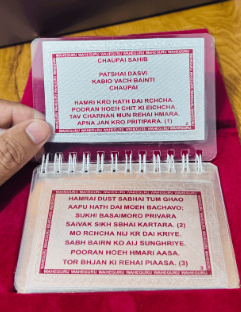 WAHEGURU WAHEGURU WAHEGURU WAHEGURU WAHEGURU
CHAUPAI SAHIB
PATSHAI DASVI
KABIO VACH BAINTI
CHAUPAI
HAMRI KRO HATH DAI RCHCHA.
POORAN HOEH CHIT KI EICHCHA.
TAV CHARNAN MUN REHAI HMARA.
APNA JAN KRO PRITIPARA. (1)
WAHEGURU WAHEGURU WAHEGURU WAHEGURU WAHEGURU
WAHEGURU WAHEGURU WAHEGURU WAHEGURU WAHEGURU
HAMRAI DUST SABHAI TUM GHAO
AAPU HATH DAI MOEH BACHAVO;
SUKHI BASAIMORO PRIVARA
SAIVAK SIKH SBHAI KARTARA. (2)
MO RCHCHA NIJ KR DAI KRIYE.
SABH BAIRN KO AIJ SUNGHRIYE.
POORAN HOEH HMARI AASA.
TOR BHJAN KI REHAI PIAASA. (3)
WAHEGURU WAHEGURU WAHEGURU WAHEGURU WAHEGURU